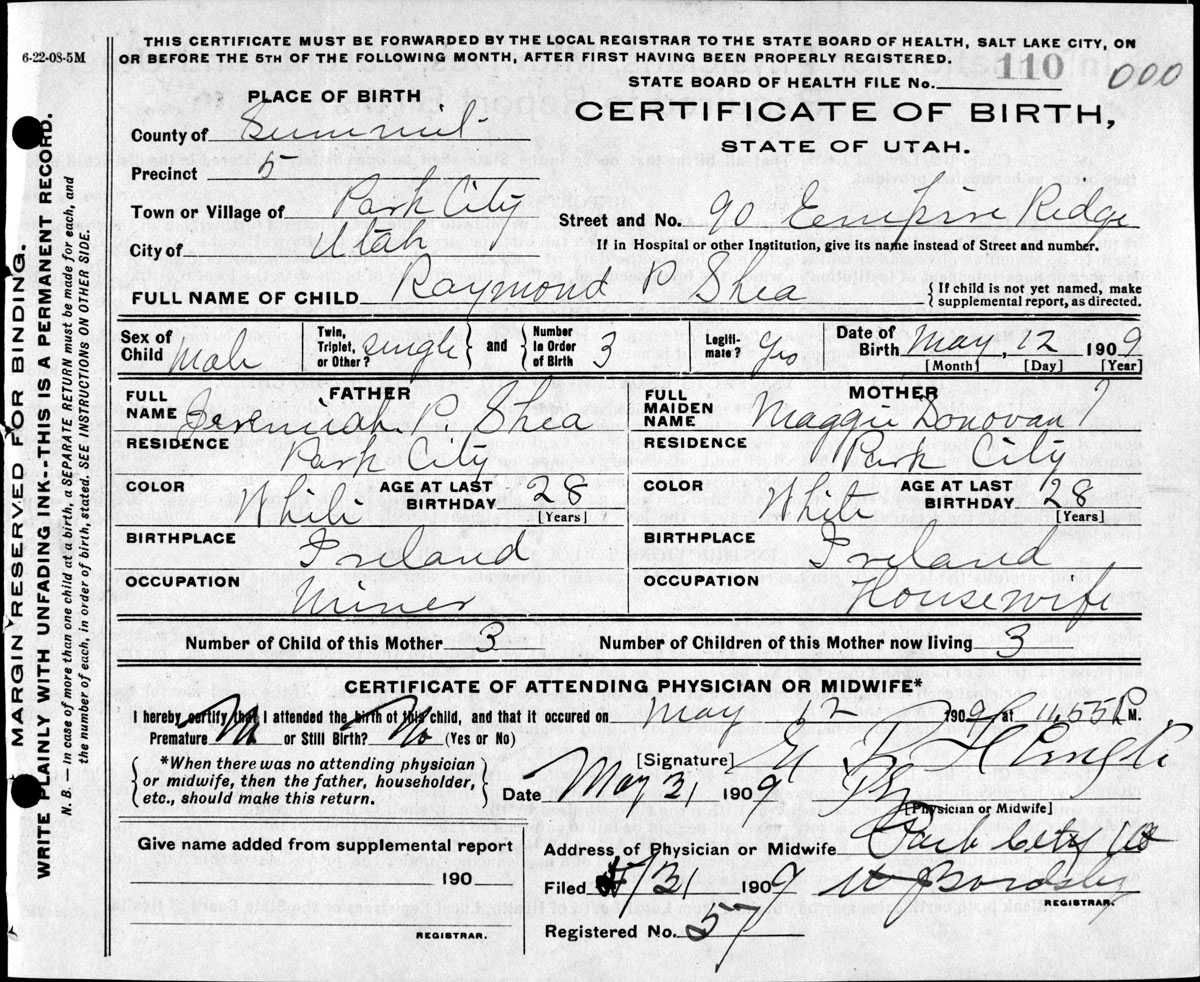 6-22-08-5M
THIS CERTIFICATE MUST BE FORWARDED BY THE LOCAL REGISTRAR TO THE STATE BOARD OF HEALTH, SALT LAKE CITY, ON
OR BEFORE THE 5TH OF THE FOLLOWING MONTH, AFTER FIRST HAVING BEEN PROPERLY REGISTERED.
STATE BOARD OF HEALTH FILE No. 110 000
PLACE OF BIRTH
CERTIFICATE OF BIRTH,
STATE OF UTAH.
County of Summit
Precinct 5
Town or Village of Park City
Street and No. 90 Empire Ridge
If in Hospital or other Institution, give its name instead of Street and number.
City of Utah
FULL NAME OF CHILD Raymond P Shea
{ If child is not yet named, make
supplemental report, as directed.
Sex of Child Male
Twin, Triplet, or Other? single } and { Number in Order of Birth 3
Legiti-mate? yes
Date of Birth May, 12 1909
[Month] [Day] [Year]
FATHER
FULL NAME Jeremiah P Shea
RESIDENCE Park City
COLOR White AGE AT LAST BIRTHDAY 28
[Years]
BIRTHPLACE Ireland
OCCUPATION Miner
MOTHER
FULL MAIDEN NAME Maggie Donovan
RESIDENCE Park City
COLOR White AGE AT LAST BIRTHDAY 28
[Years]
BIRTHPLACE Ireland
OCCUPATION Housewife
Number of Child of this Mother 3 Number of Children of this Mother now living 3
CERTIFICATE OF ATTENDING PHYSICIAN OR MIDWIFE*
I hereby certify that I attended the birth of this child, and that it occured on May 12 1909 at 11,55 P M.
Premature No or Still Birth? No (Yes or No)
{ *When there was no attending physician
or midwife, then the father, householder,
etc., should make this return. }
[Signature]
Date May 31 1909
[Physician or Midwife]
Address of Physician or Midwife Park City Ut
Filed 5/31 1909
REGISTRAR.
Registered No. 57
Give name added from supplemental report
190
REGISTRAR.
MARGIN RESERVED FOR BINDING.
WRITE PLAINLY WITH UNFADING INK--THIS IS A PERMANENT RECORD.
N. B. — In case of more than one child at a birth, a SEPARATE RETURN must be made for each, and
the number of each, in order of birth, stated. SEE INSTRUCTIONS ON OTHER SIDE.